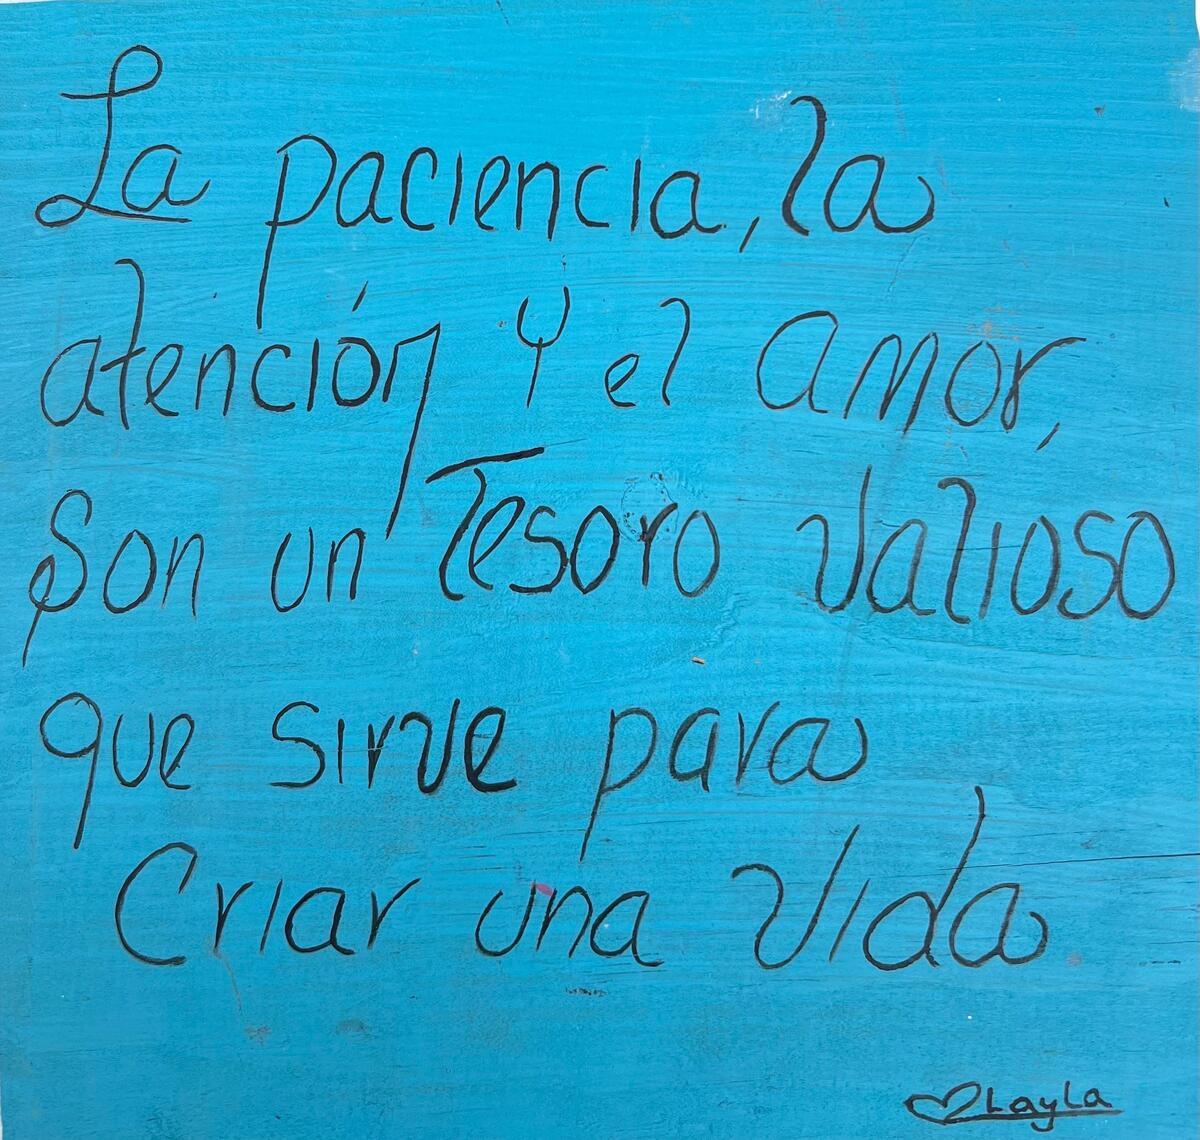 La paciencia, la
atención y el amor,
Son un Tesoro Valioso
que sirve para
Criar una Vida
♡Layla